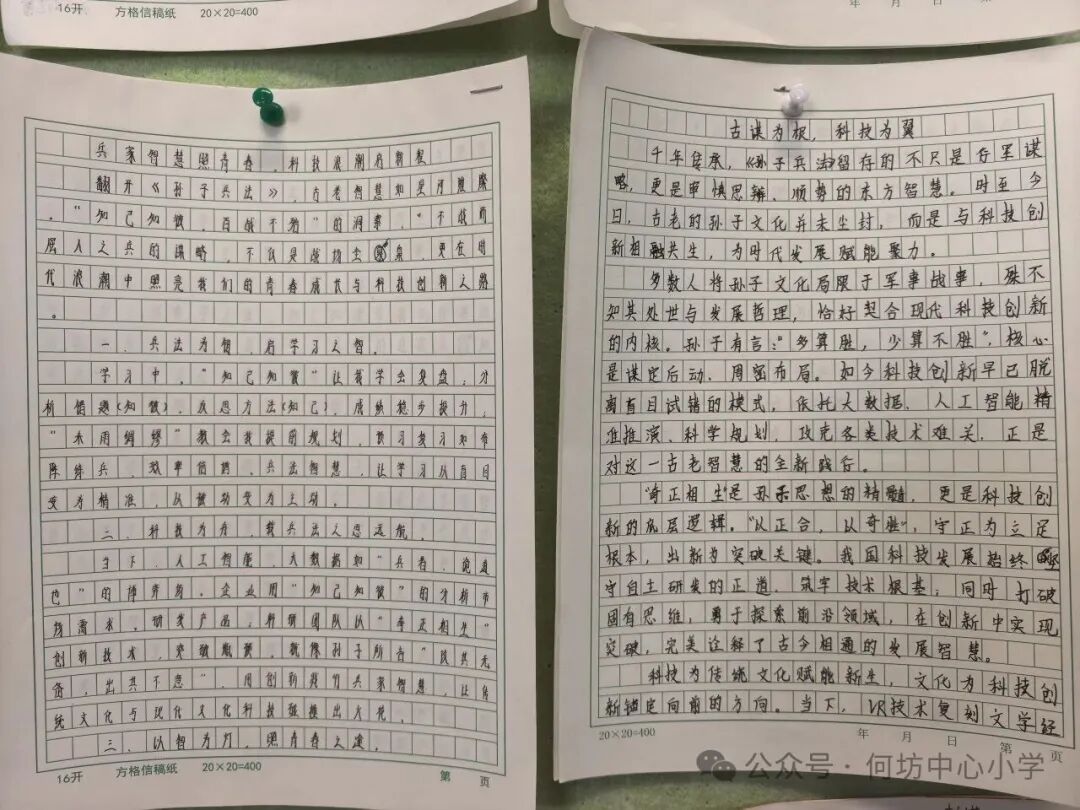 16开 方格信稿纸 20×20=400
年 月 日
兵家智慧照青春，科技浪潮启新程
翻开《孙子兵法》，古老智慧如星河璀璨
，“知己知彼，百战不殆”的洞察，“不战而
屈人之兵的谋略，不仅是战场尘泉，更在时
代浪潮中照亮我们的青春成长与科技创新之路
。
一、兵法为智，启学习之智。
学习中，“知己知彼”让我学会复盘：分
析错题（知彼）、反思方法（知己），成绩稳步提升，
“未雨绸缪”教会我提前规划，预习复习如布
阵练兵，效率倍增，兵法智慧，让学习从盲目
变为精准，从被动变为主动。
二、科技为舟，载兵法之思远航。
当下，人工智能、大数据如“兵者，诡道
也”的博弈场，企业用“知己知彼”的分析市
场需求，研发产品，科研团队以“奇正相生”
创新技术，突破瓶颈，就像孙子所言“攻其无
备，出其不意”，用创新践行兵家智慧，让传
统文化与现代文化科技碰撞出火花。
三、以智为灯，照青春之途。
16开 方格信稿纸 20×20=400 第 页
古谋为根，科技为翼
千年传承，《孙子兵法》留存的不只是存军谋
略，更是审慎思辨、顺势的东方智慧。时至今
日，古老的孙子文化并未尘封，而是与科技创
新相融共生，为时代发展赋能聚力。
多数人将孙子文化局限于军事战事，殊不
知其处世与发展哲理，恰好契合现代科技创新
的内核。孙子有言：“多算胜，少算不胜”，核心
是谋定后动、周密布局。如今科技创新早已脱
离盲目试错的模式，依托大数据、人工智能精
准推演、科学规划，攻克各类技术难关，正是
对这一古老智慧的全新践行。
“奇正相生”是孙子思想的精髓，更是科技创
新的底层逻辑。“以正合，以奇胜”，守正为立足
根本，出新为突破关键。我国科技发展始终坚
守自主研发的正道，筑牢技术根基；同时打破
固有思维，勇于探索前沿领域，在创新中实现
突破，完美诠释了古今相通的发展智慧。
科技为传统文化赋能新生，文化为科技创
新锚定向前的方向。当下，VR技术复刻文学经
20×20=400 年 月 日 第 页
公众号·何坊中心小学